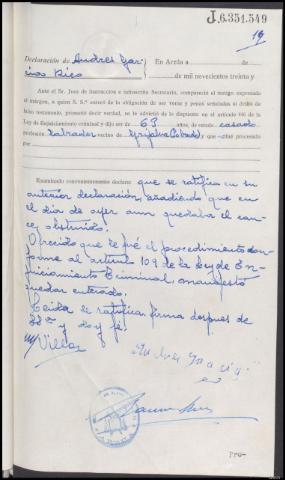 J.6.351.549
19
Declaración de Andrés Gar
cías Rico
En Arcila a de
de mil novecientos treinta y
Ante el Sr. Juez de Instrucción e infrascrito Secretario, compareció el testigo expresado
al margen, a quien S. S.ª enteró de la obligación de ser veraz y penas señaladas al delito de
falso testimonio, prometió decir verdad, se le advirtió de lo dispuesto en el artículo 446 de la
Ley de Enjuiciamiento criminal y dijo ser de 63 años, de estado casado
profesión labrador vecino de y que sido procesado
por
Examinado convenientemente declara: que se ratifica en su
anterior declaración, añadiendo que en
el día de ayer aun quedaba el cau-
ce obstruido.
Ofrecido que le fué el procedimiento con-
forme al artículo 109 de la Ley de En-
juiciamiento Criminal, manifestó
quedar enterado.
Leida se ratifica firma despues de
S.Sª y doy fé.
Pro-